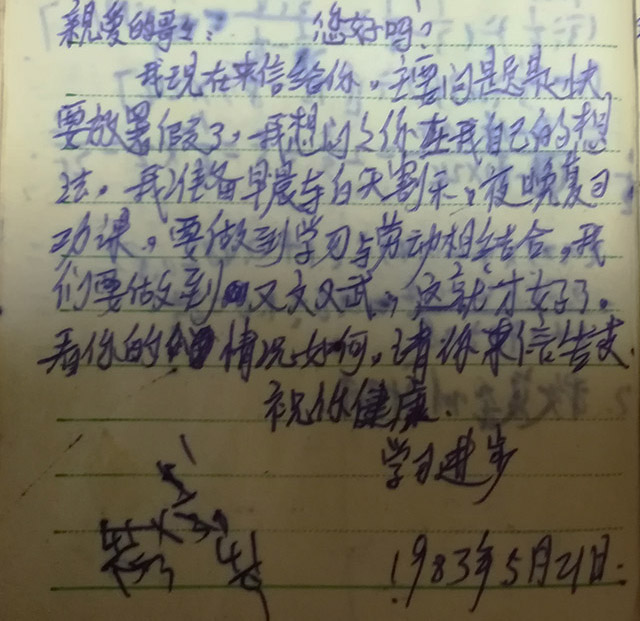 親爱的哥々： 您好吗？
我现在来信给你，主要问是总是快
要放暑假了，我想问々你在我自己的想
法。我准备早晨与白天割禾，夜晚复习
功课，要做到学习与劳动相结合，我
们要做到又文又武，这就才好了。
看你的情况如何，请你来信告支.
祝你健康.
学习进步
1983年5月21日.